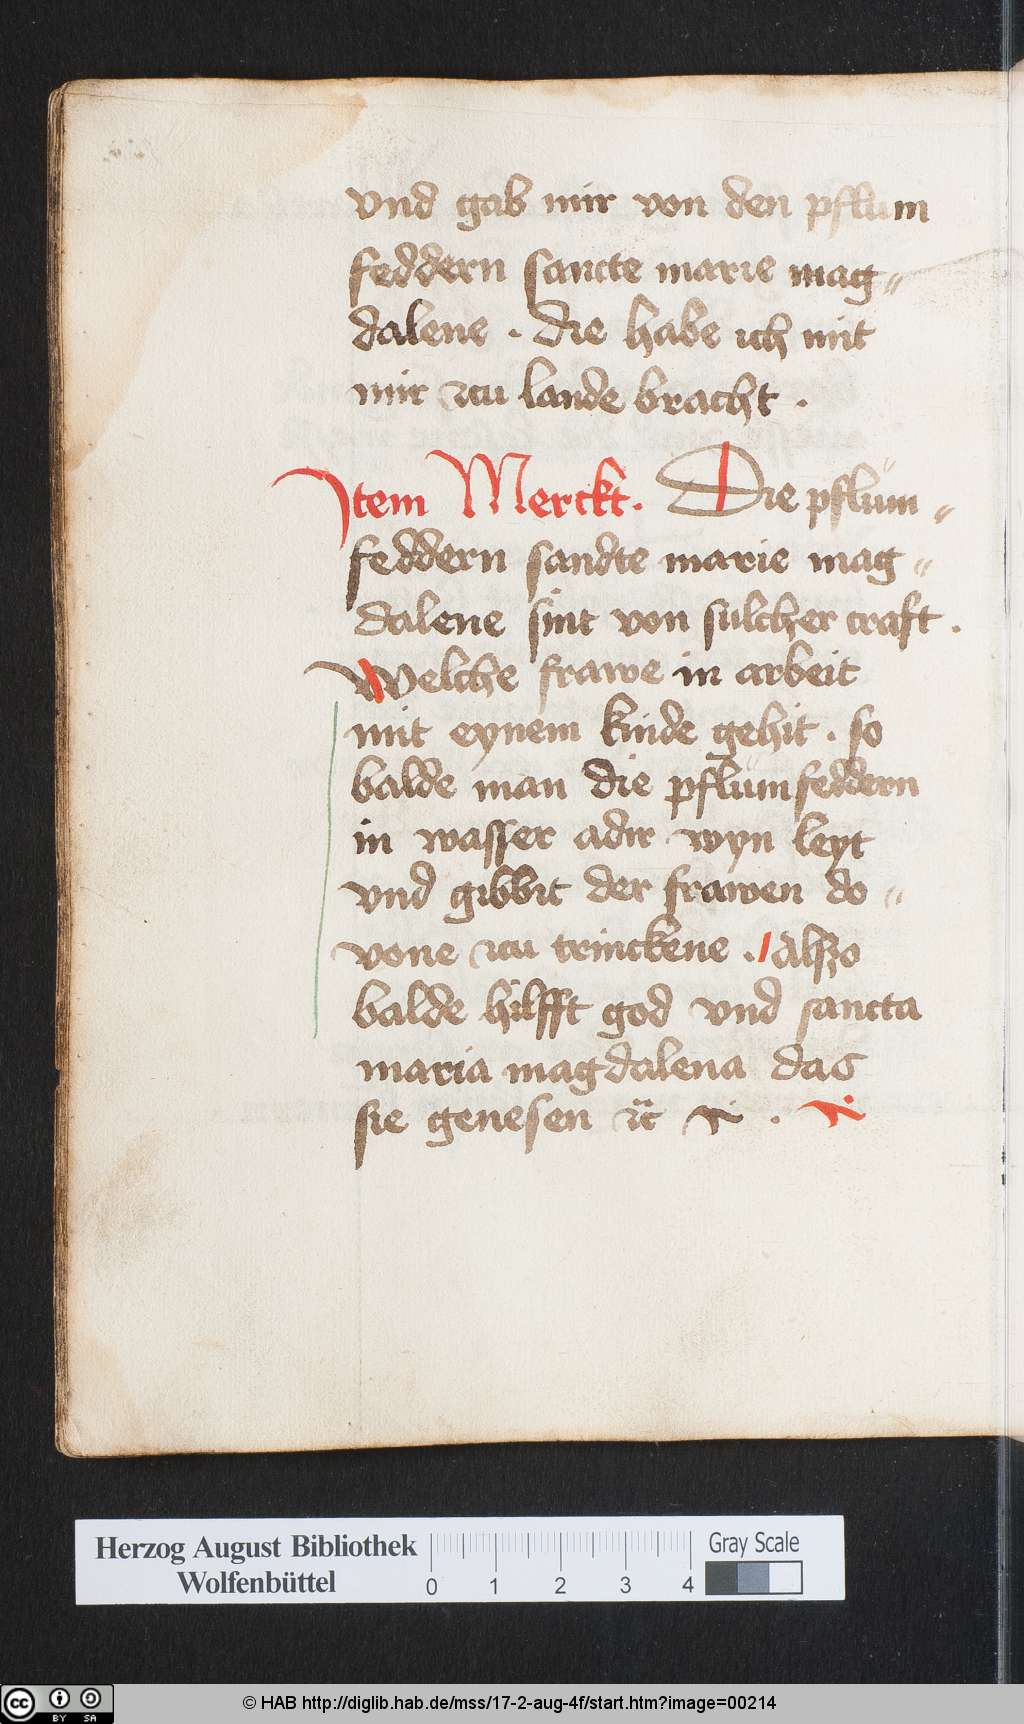 vnd gab mir von den pflum
feddern sancte marie mag=
dalene . die habe ich mit
mir zcu lande bracht .
Item Merckt. Die pflům=
feddern sancte marie mag=
dalene sint von sulcher craft .
Welche frawe in arbeit
mit eynem kinde gehit . so
balde man die pflům feddern
in wasser adir wyn leyt
vnd gibbit der frawen do=
vone zcu trinckene . Alszo
balde hilfft god vnd sancta
maria magdalena das
sie genesen ꝛc
Herzog August Bibliothek
Wolfenbüttel
0 1 2 3 4
Gray Scale
cc BY SA
© HAB http://diglib.hab.de/mss/17-2-aug-4f/start.htm?image=00214